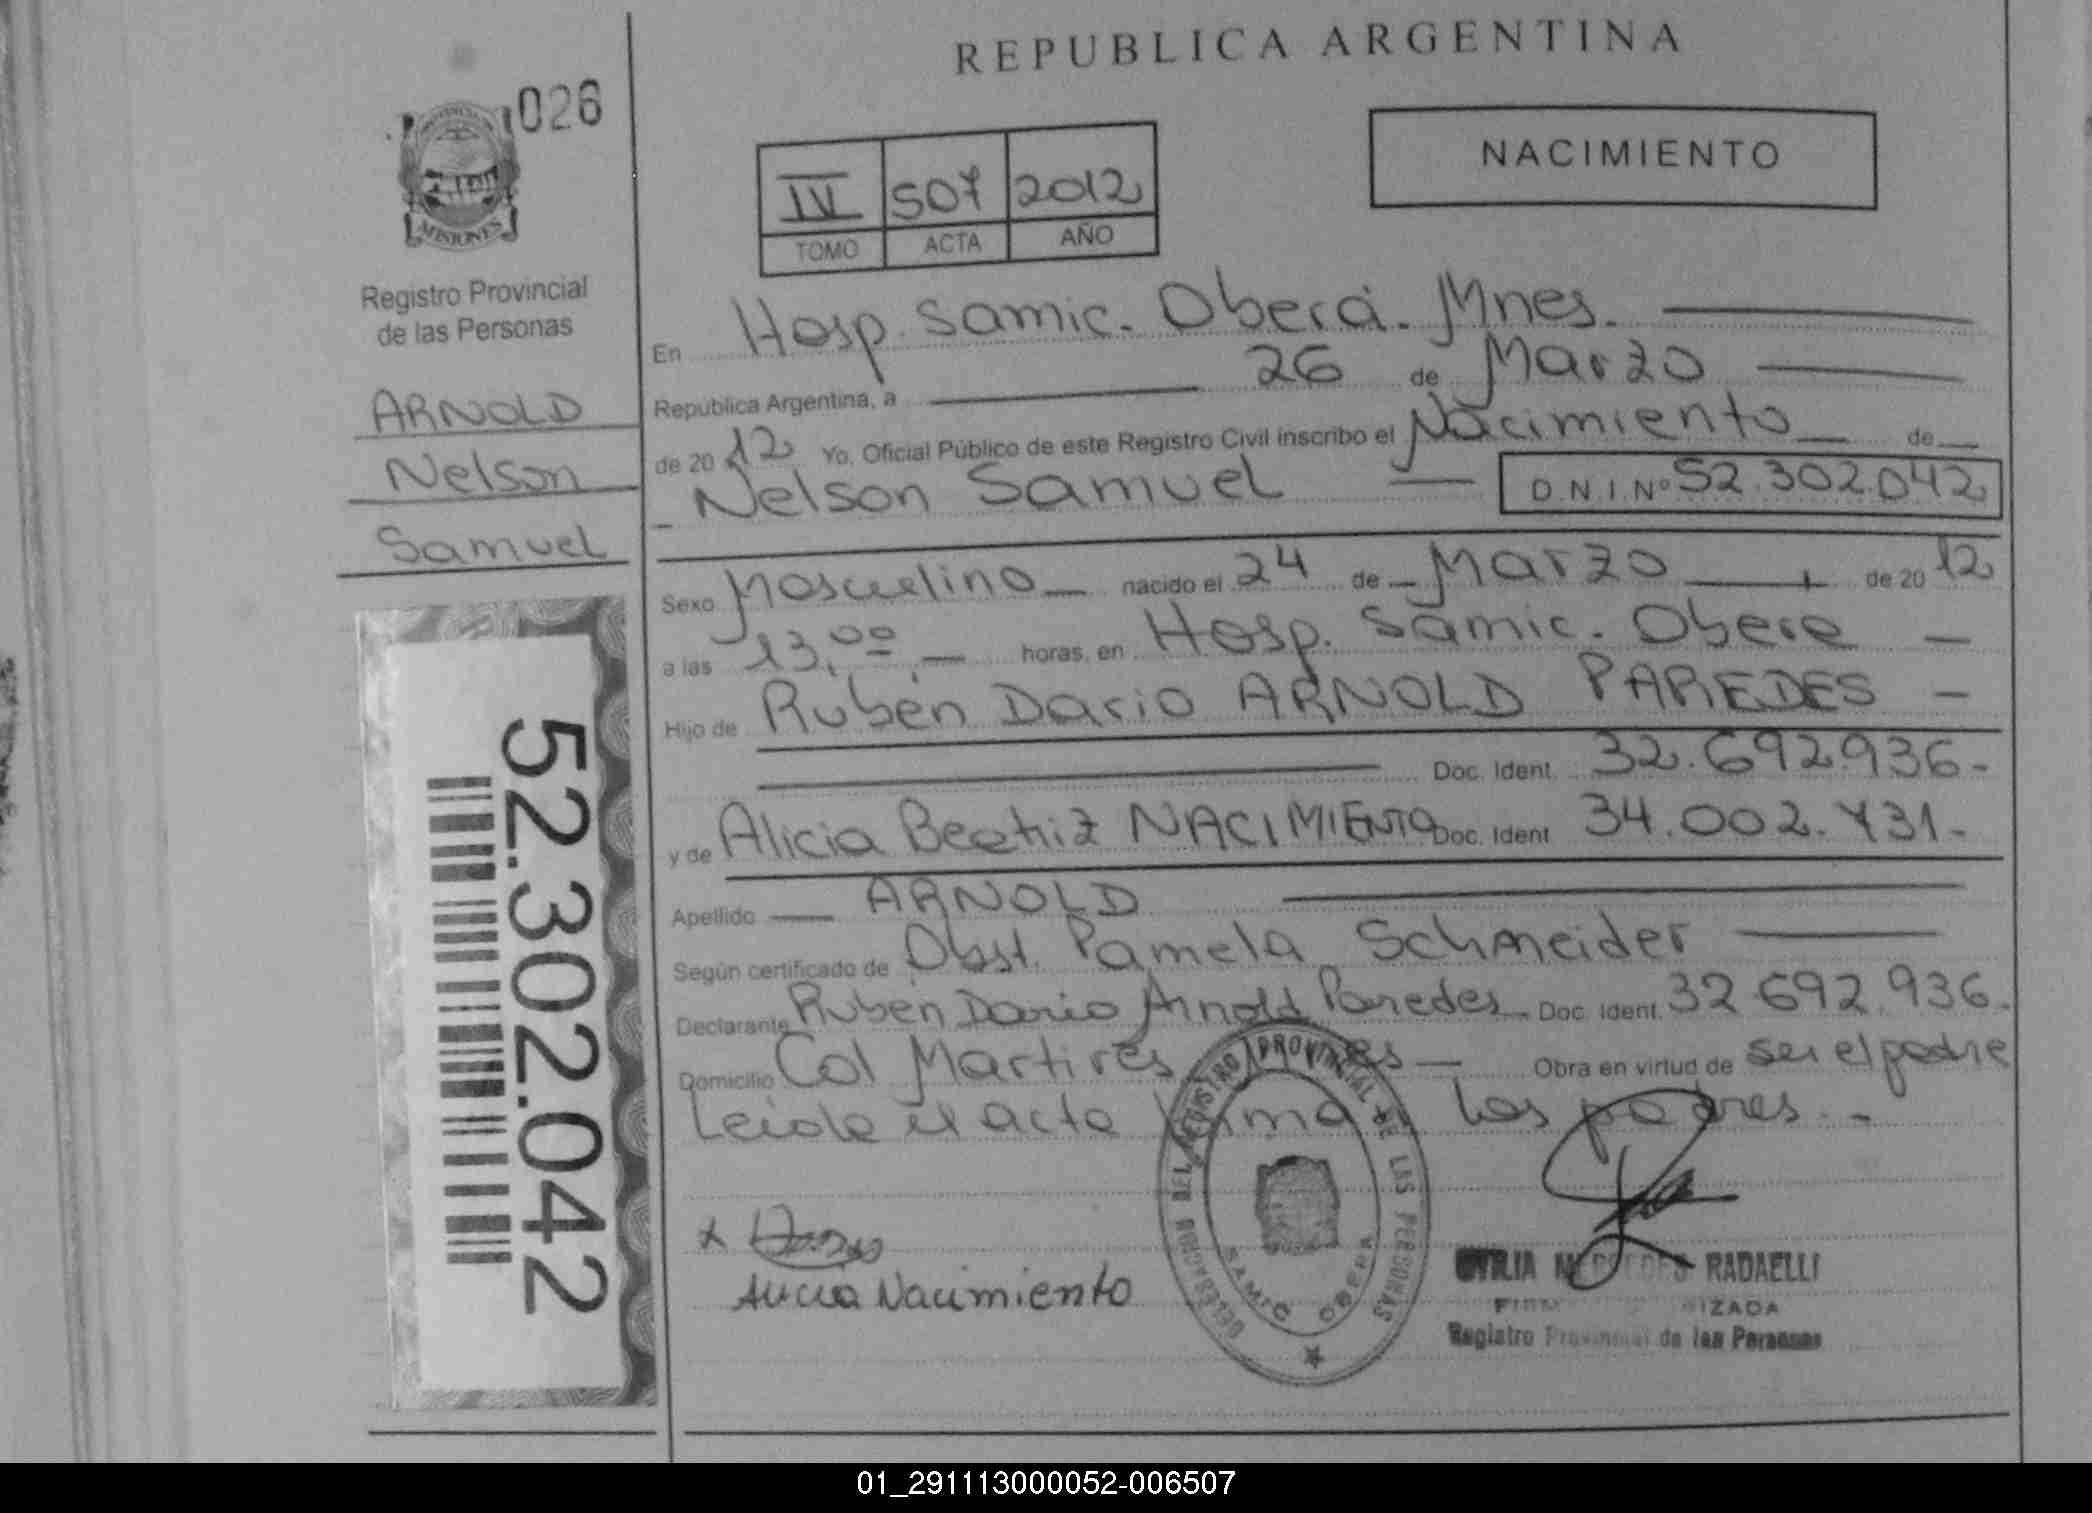 REPUBLICA ARGENTINA
026
NACIMIENTO
IV 507 2012
TOMO ACTA AÑO
MISIONES
Registro Provincial
de las Personas
ARNOLD
Nelson
Samuel
52.302.042
En Hosp. Samic. Oberá. Mnes.
República Argentina, a 26 de Marzo
de 20 12 Yo, Oficial Público de este Registro Civil inscribo el Nacimiento de
Nelson Samuel D.N.I.Nº 52.302.042
Sexo Masculino nacido el 24 de Marzo de 20 12
a las 13,00 horas, en Hosp. Samic. Obera
Hijo de Rubén Dario ARNOLD PAREDES
Doc. Ident. 32.692.936-
y de Alicia Beatriz NACIMIENTO Doc. Ident 34.002.431-
Apellido ARNOLD
Según certificado de Obst. Pamela Schneider
Declarante Rubén Dario Arnold Paredes Doc. Ident. 32.692.936.
Domicilio Col Martires Obra en virtud de ser el padre
Leida el acta los padres.-
DELEGACION DEL REGISTRO PROVINCIAL DE LAS PERSONAS
SAMIC OBERA
x
Alicia Nacimiento
RADAELLI
Registro Provincial de las Personas
01_291113000052-006507